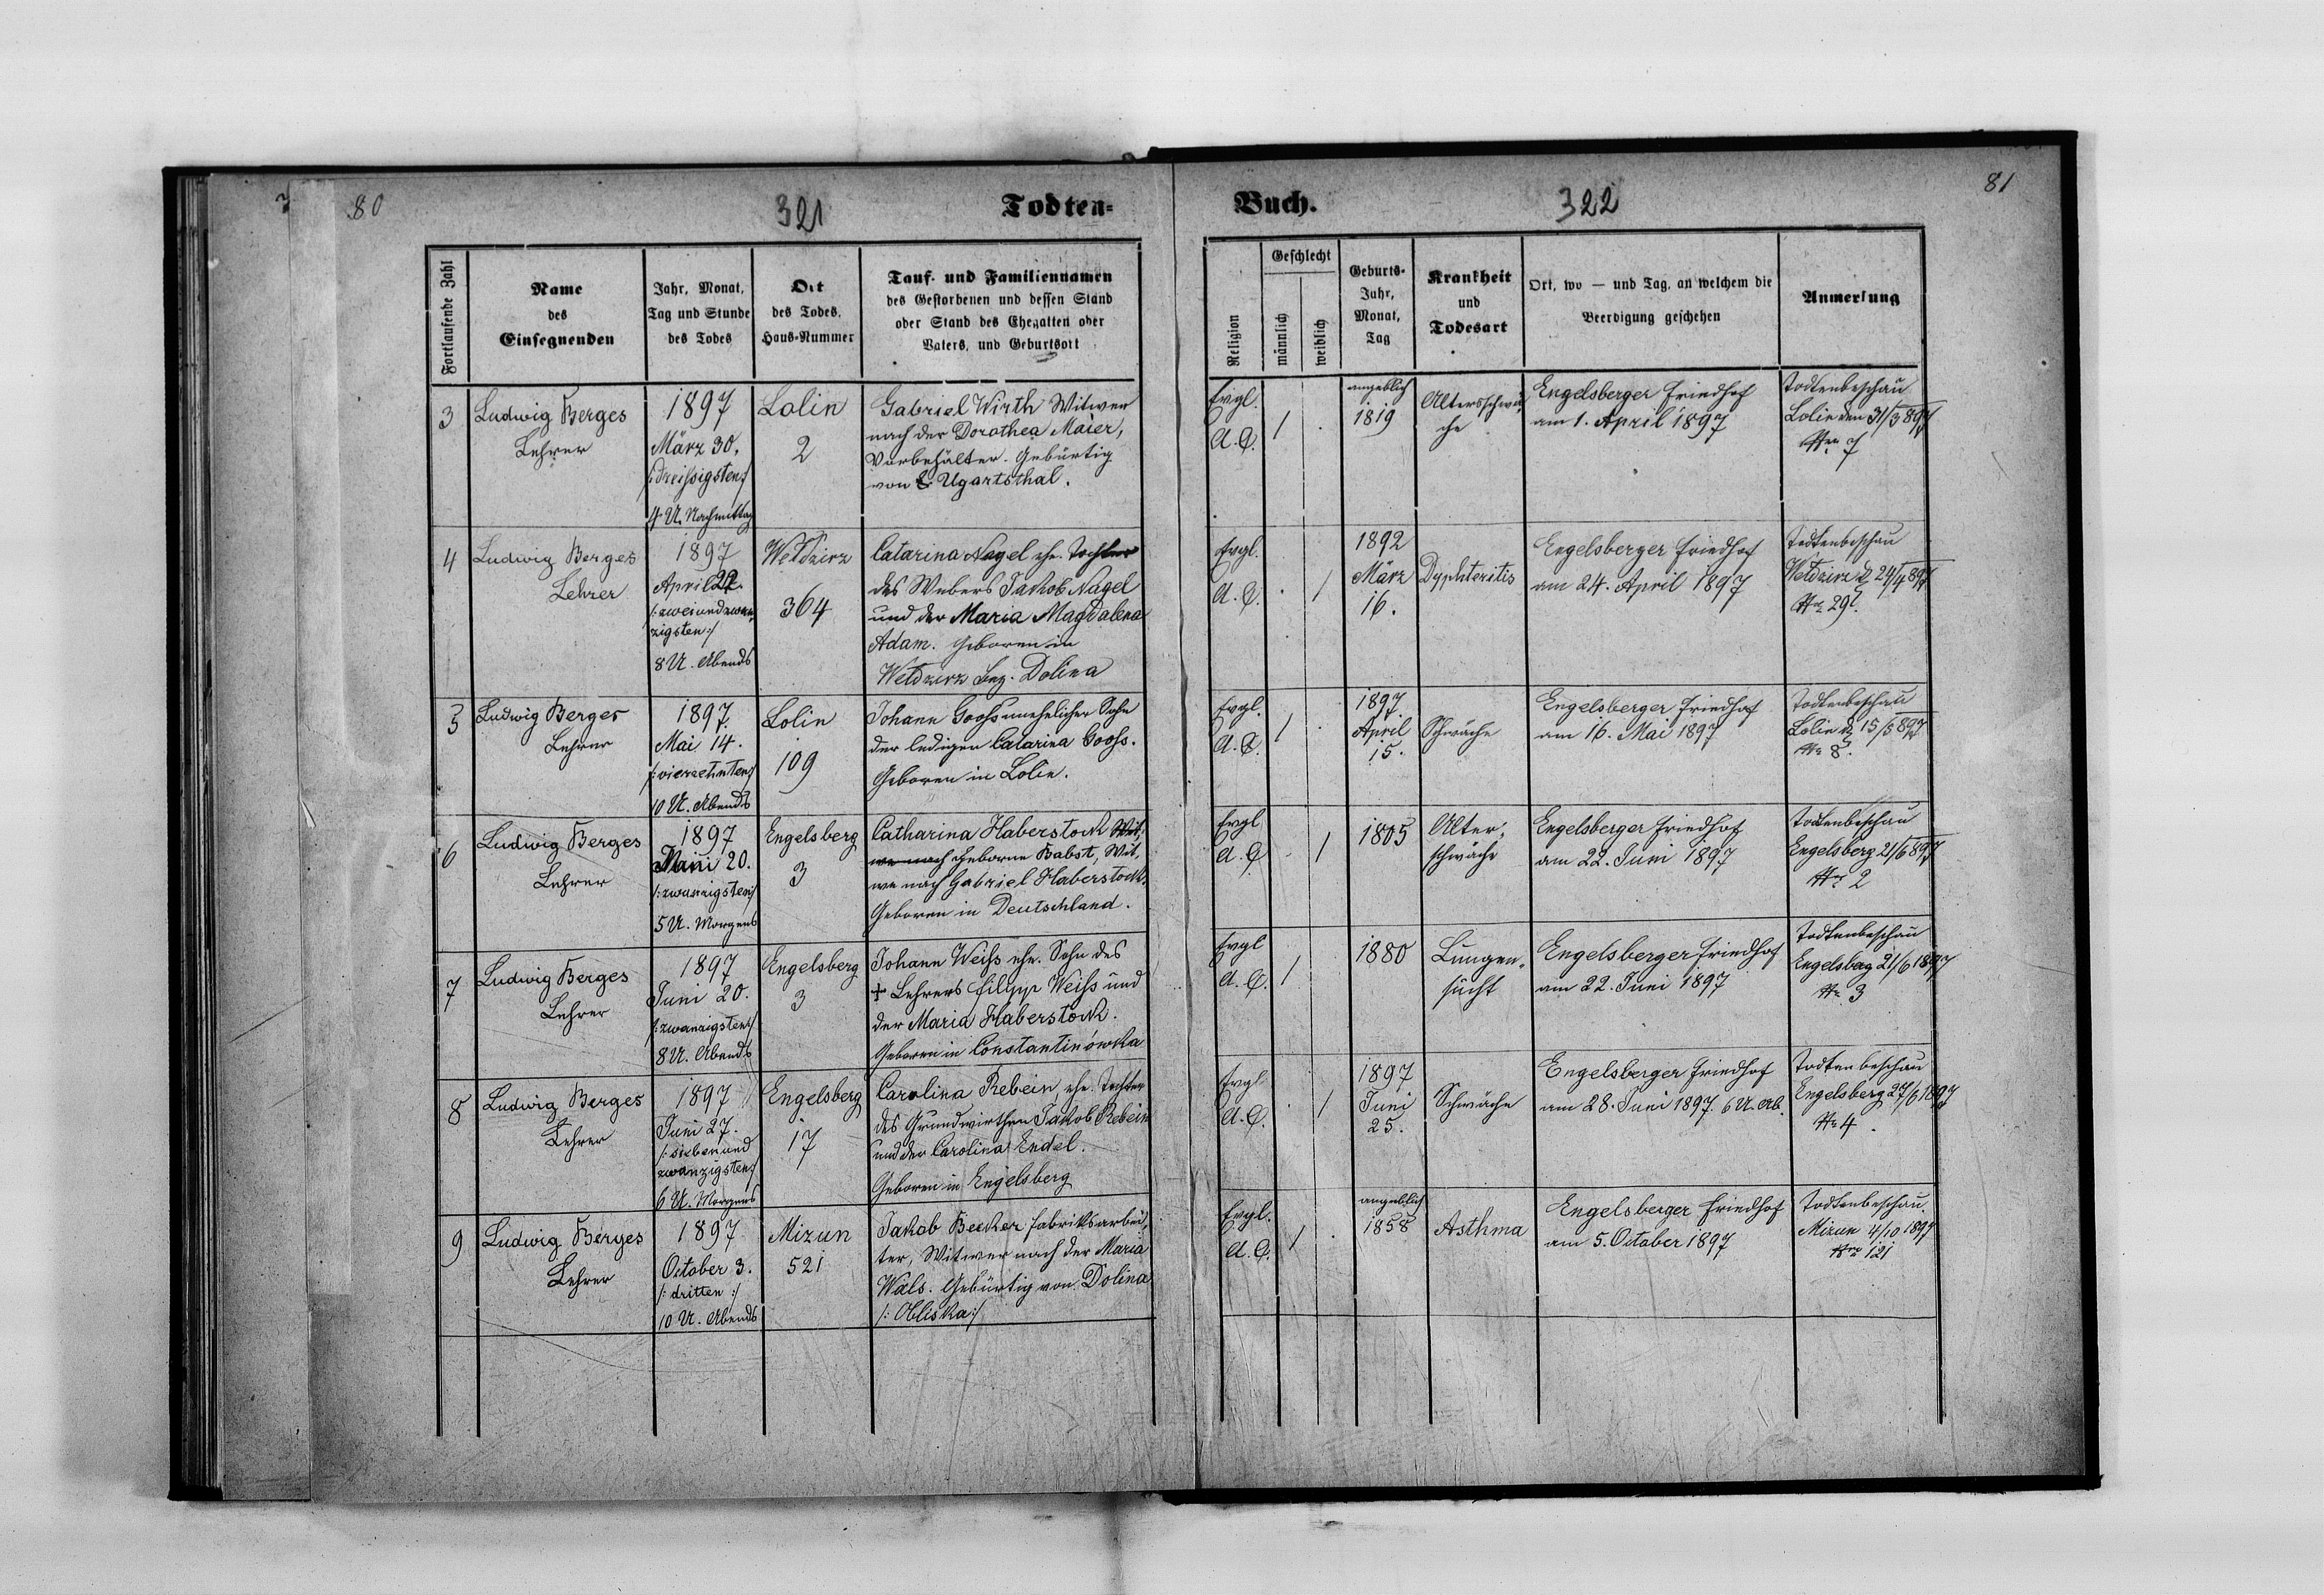 80
321
Todten-
Buch.
322
81
Fortlaufende Zahl
Name
des
Einsegnenden
Jahr, Monat,
Tag und Stunde
des Todes
Ort
des Todes,
Haus-Nummer
Tauf- und Familiennamen
des Gestorbenen und dessen Stand
oder Stand des Ehegatten oder
Vaters, und Geburtsort
Religion
Geschlecht
männlich
weiblich
Geburts-
Jahr,
Monat,
Tag
Krankheit
und
Todesart
Ort, wo — und Tag, an welchem die
Beerdigung geschehen
Anmerkung
3
Ludwig Berges
Lehrer
1897
März 30.
/: dreissigsten :/
4 U. Nachmittag
Lolin
2
Gabriel Wirth Witwer
nach der Dorothea Maier,
Vorbehälter. Gebürtig
von Ugartsthal.
Evgl.
A. C.
1
.
angeblich
1819
Altersschwä-
che
Engelsberger Friedhof
am 1. April 1897
Todtenbeschau
Lolin den 31/3 897
Nro 7
4
Ludwig Berges
Lehrer
1897
April 22.
/: zweiundzwan-
zigsten :/
8 U. Abends
Wełdzirz
364
Catarina Nagel ehe. Tochter
des Webers Jakob Nagel
und der Maria Magdalena
Adam. Geboren in
Wełdzirz Bez. Dolina
Evgl.
A. C.
.
1
1892
März
16.
Dyphteritis
Engelsberger Friedhof
am 24. April 1897
Todtenbeschau
Wełdzirz d. 24/4 897
Nro 29
5
Ludwig Berges
Lehrer
1897.
Mai 14.
/: vierzehnten :/
10 U. Abends
Lolin
109
Johann Gooss unehelicher Sohn
der ledigen Catarina Gooss.
Geboren in Lolin.
Evgl.
A. C.
1
.
1897.
April
15.
Schwäche
Engelsberger Friedhof
am 16. Mai 1897
Todtenbeschau
Lolin d. 15/5 897
Nr 8.
6
Ludwig Berges
Lehrer
1897
Juni 20.
/: zwanzigsten :/
5 U. Morgens
Engelsberg
3
Catharina Haberstock Wit-
we nach geborne Babst, Wit-
we nach Gabriel Haberstock.
Geboren in Deutschland.
Evgl
A. C.
.
1
1805
Alter-
schwäche
Engelsberger Friedhof
am 22. Juni 1897
Todtenbeschau
Engelsberg 21/6 897
Nro 2
7
Ludwig Berges
Lehrer
1897
Juni 20.
/: zwanzigsten :/
8 U. Abends
Engelsberg
3
Johann Weiss ehe. Sohn des
+ Lehrers Filipp Weiss und
der Maria Haberstock.
Geboren in Constantinówka
Evgl
A. C.
1
1880
Lungen-
sucht
Engelsberger Friedhof
am 22. Juni 1897
Todtenbeschau
Engelsberg 21/6 1897
Nr. 3
8
Ludwig Berges
Lehrer
1897
Juni 27.
/: siebenund
zwanzigsten :/
6 U. Morgens
Engelsberg
17
Carolina Rebein, ehe. Tochter
des Grundwirthen Jakob Rebein
und der Carolina Endel.
Geboren in Engelsberg
Evgl
A. C.
.
1
1897
Juni
25.
Schwäche
Engelsberger Friedhof
am 28. Juni 1897. 6 U. Ab.
Todtenbeschau
Engelsberg 27/6 1897
Nr 4.
9
Ludwig Berges
Lehrer
1897
October 3.
/: dritten :/
10 U. Abends
Mizun
521
Jakob Becker Fabriksarbei-
ter, Witwer nach der Maria
Wals. Gebürtig von Dolina
/: Obliska :/
Evgl.
A. C.
1
.
angeblich
1858
Asthma
Engelsberger Friedhof
am 5. October 1897
Todtenbeschau
Mizun 4/10 1897
Nro 121